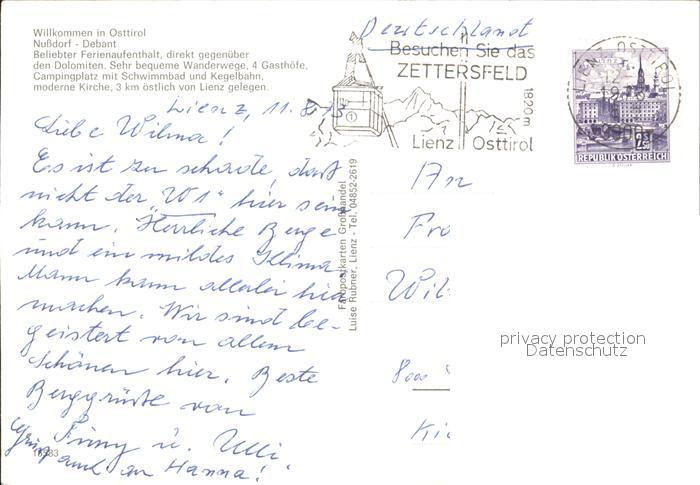 Willkommen in Osttirol
Nußdorf - Debant
Beliebter Ferienaufenthalt, direkt gegenüber
den Dolomiten. Sehr bequeme Wanderwege, 4 Gasthöfe,
Campingplatz mit Schwimmbad und Kegelbahn,
moderne Kirche, 3 km östlich von Lienz gelegen.
Lienz, 11.8.73
Liebe Wilma!
Es ist zu schade, daß
nicht der „W1" hier sein
kann. Herrliche Berge
und ein mildes Klima.
Mann kann allerlei hier
machen. Wir sind be-
geistert von allem
Schönen hier. Beste
Berggrüße von
Finny u. Ulli.
auch an Hanna!
16383
Farbpostkarten Großhandel
Luise Rubner, Lienz - Tel. 04852-2619
Deutschland
Besuchen Sie das
ZETTERSFELD
1820 m
Lienz Osttirol
1
LIENZ, OSTTIROL
9900
REPUBLIK ÖSTERREICH
An
Fro
Wil
8000
Kir
privacy protection
Datenschutz